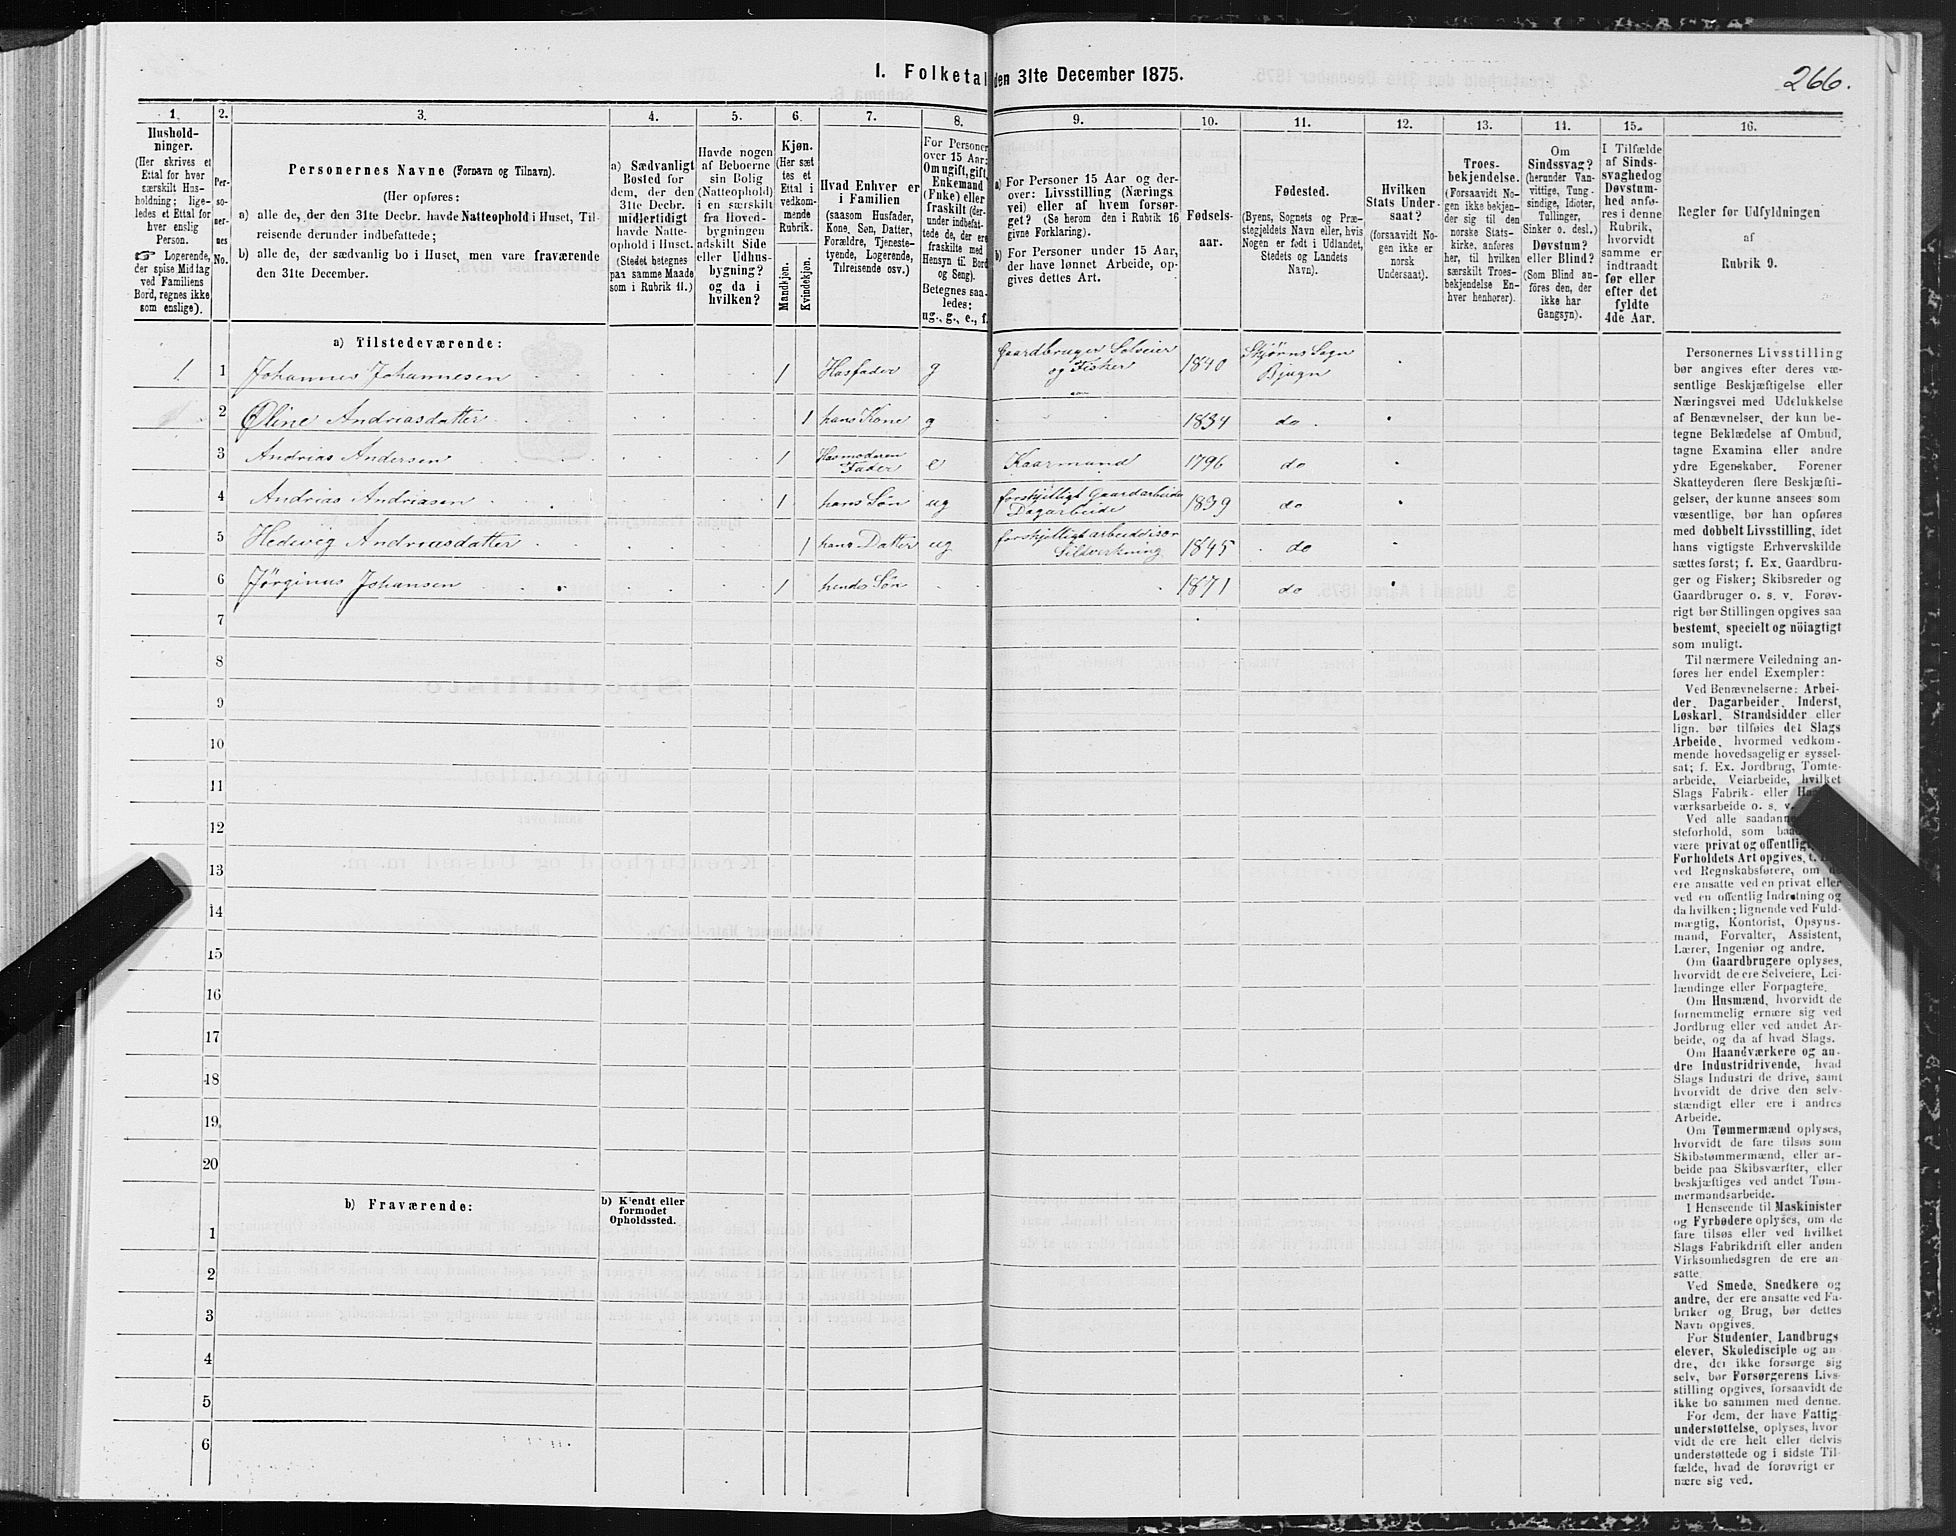 I. Folketal den 31te December 1875.
266.
1.
2.
3.
4.
5.
6.
7.
8.
9.
10.
11.
12.
13.
14.
15.
16.
Hushold-
ninger.
(Her skrives et
Ettal for hver
særskilt Hus-
holdning; lige-
ledes et Ettal for
hver enslig
Person.
☞ Logerende,
der spise Middag
ved Familiens
Bord, regnes ikke
som enslige).
Per-
so-
ner-
nes
No.
Personernes Navne (Fornavn og Tilnavn).
(Her opføres:
a) alle de, der den 31te Decbr. havde Natteophold i Huset, Til-
reisende derunder indbefattede;
b) alle de, der sædvanlig bo i Huset, men vare fraværende
den 31te December.
a) Sædvanligt
Bosted for
dem, der den
31te Decbr.
midlertidigt
havde Natte-
ophold i Huset.
(Stedet betegnes
paa samme Maade
som i Rubrik 11.)
Havde nogen
af Beboerne
sin Bolig
(Natteophold)
i en særskilt
fra Hoved-
bygningen
adskilt Side
eller Udhus-
bygning?
og da i
hvilken?
Kjøn.
(Her sæt
tes et
Ettal i
vedkom-
mende
Rubrik.
Mandkjøn.
Kvindekjøn.
Hvad Enhver er
i Familien
(saasom Husfader,
Kone, Søn, Datter,
Forældre, Tjeneste-
tyende, Logerende,
Tilreisende osv.)
For Personer
over 15 Aar:
Om ugift, gift,
Enkemand
(Enke) eller
fraskilt (der-
under indbefat-
tede de, der ere
fraskilte med
Hensyn til Bord
og Seng).
Betegnes saa-
ledes:
ug., g., e., f.
a) For Personer 15 Aar og der-
over: Livsstilling (Nærings
vei) eller af hvem forsør-
get? (Se herom den i Rubrik 16
givne Forklaring).
b) For Personer under 15 Aar,
der have lønnet Arbeide, op-
gives dettes Art.
Fødsels-
aar.
Fødested.
(Byens, Sognets og Præ-
stegjeldets Navn eller, hvis
Nogen er født i Udlandet,
Stedets og Landets
Navn).
Hvilken
Stats Under-
saat?
(forsaavidt No-
gen ikke er
norsk
Undersaat).
Troes-
bekjendelse.
(Forsaavidt No-
gen ikke bekjen-
der sig til den
norske Stats-
kirke, anføres
her, til hvilken
særskilt Troes-
bekjendelse En-
hver henhører).
Om
Sindssvag?
(herunder Van-
vittige, Tung-
sindige, Idioter,
Tullinger,
Sinker o. desl.)
Døvstum?
eller Blind?
(Som Blind an-
föres den, der
ikke har
Gangsyn).
I Tilfælde
af Sinds-
svaghed og
Døvstum-
hed anfø-
res i denne
Rubrik,
hvorvidt
samme er
indtraadt
før eller
efter det
fyldte
4de Aar.
Regler for Udfyldningen
af
Rubrik 9.
a) Tilstedeværende:
1. 1 Johannes Johannesen 1 Husfader g Gaardbruger Selveier og Fisker 1840 Skjørns Sogn Bjugn
2 Øline Andriasdatter 1 hans Kone g 1834 do
3 Andrias Andersen 1 Husmoderen Fader e Kaarmand 1796 do
4 Andrias Andriasen 1 hans Søn ug forskjelligt Gaardarbeide Dagarbeide 1839 do
5 Hedevig Andriasdatter 1 hans Datter ug Sildvirkning 1845 do
6 Jørginus Johansen 1 hendes Søn 1871 do
7
8
9
10
11
12
13
14
15
16
17
18
19
20
b) Fraværende:
b) Kjendt eller
formodet
Opholdssted.
1
2
3
4
5
6
Personernes Livsstilling
bør angives efter deres væ-
sentlige Beskjæftigelse eller
Næringsvei med Udelukkelse
af Benævnelser, der kun be-
tegne Beklædelse af Ombud,
tagne Examina eller andre
ydre Egenskaber. Forener
Skatteyderen flere Beskjæfti-
gelser, der kunne ansees som
væsentlige, bør han opføres
med dobbelt Livsstilling, idet
hans vigtigste Erhvervskilde
sættes først; f. Ex. Gaardbru-
ger og Fisker; Skibsreder og
Gaardbruger o. s. v. Forøv-
rigt bør Stillingen opgives saa
bestemt, specielt og nöiagtigt
som muligt.
Til nærmere Veiledning an-
føres her endel Exempler:
Ved Benævnelserne: Arbei-
der, Dagarbeider, Inderst,
Løskarl, Strandsidder eller
lign. bør tilføies det Slags
Arbeide, hvormed vedkom-
mende hovedsagelig er syssel-
sat; f. Ex. Jordbrug, Tomte-
arbeide, Veiarbeide, hvilket
Slags Fabrik- eller
værksarbeide o. s. v.
Ved alle saadanne
steforhold, som
være privat og offentlig
Forholdets Art opgives,
ved Regnskabsførere, om
ere ansatte ved en privat eller
ved en offentlig Indretning og
da hvilken; lignende ved Fuld-
mægtig, Kontorist, Opsyns-
mand, Forvalter, Assistent,
Lærer, Ingeniør og andre.
Om Gaardbrugere oplyses,
hvorvidt de ere Selveiere, Lei-
lændinge eller Forpagtere.
Om Husmænd, hvorvidt de
fornemmelig ernære sig ved
Jordbrug eller ved andet Ar-
beide, og da af hvad Slags.
Om Haandværkere og an-
dre Industridrivende, hvad
Slags Industri de drive, samt
hvorvidt de drive den selv-
stændigt eller ere i andres
Arbeide.
Om Tømmermænd oplyses,
hvorvidt de fare tilsøs som
Skibstømmermænd, eller ar-
beide paa Skibsværfter, eller
beskjæftiges ved andet Tøm-
mermandsarbeide.
I Henseende til Maskinister
og Fyrbødere oplyses, om de
fare tilsøs eller ved hvilket
Slags Fabrikdrift eller anden
Virksomhedsgren de ere an-
satte.
Ved Smede, Snedkere og
andre, der ere ansatte ved Fa-
briker og Brug, bør dettes
Navn opgives.
For Studenter, Landbrugs
elever, Skoledisciple og an
dre, der ikke forsørge sig
selv, bør Forsørgerens Livs-
stilling opgives, forsaavidt de
ikke bo sammen med denne.
For dem, der have Fattig-
understøttelse, oplyses, hvor
vidt de ere helt eller delvis
understøttede og i sidste Til-
fælde, hvad de forøvrigt er
nære sig ved.